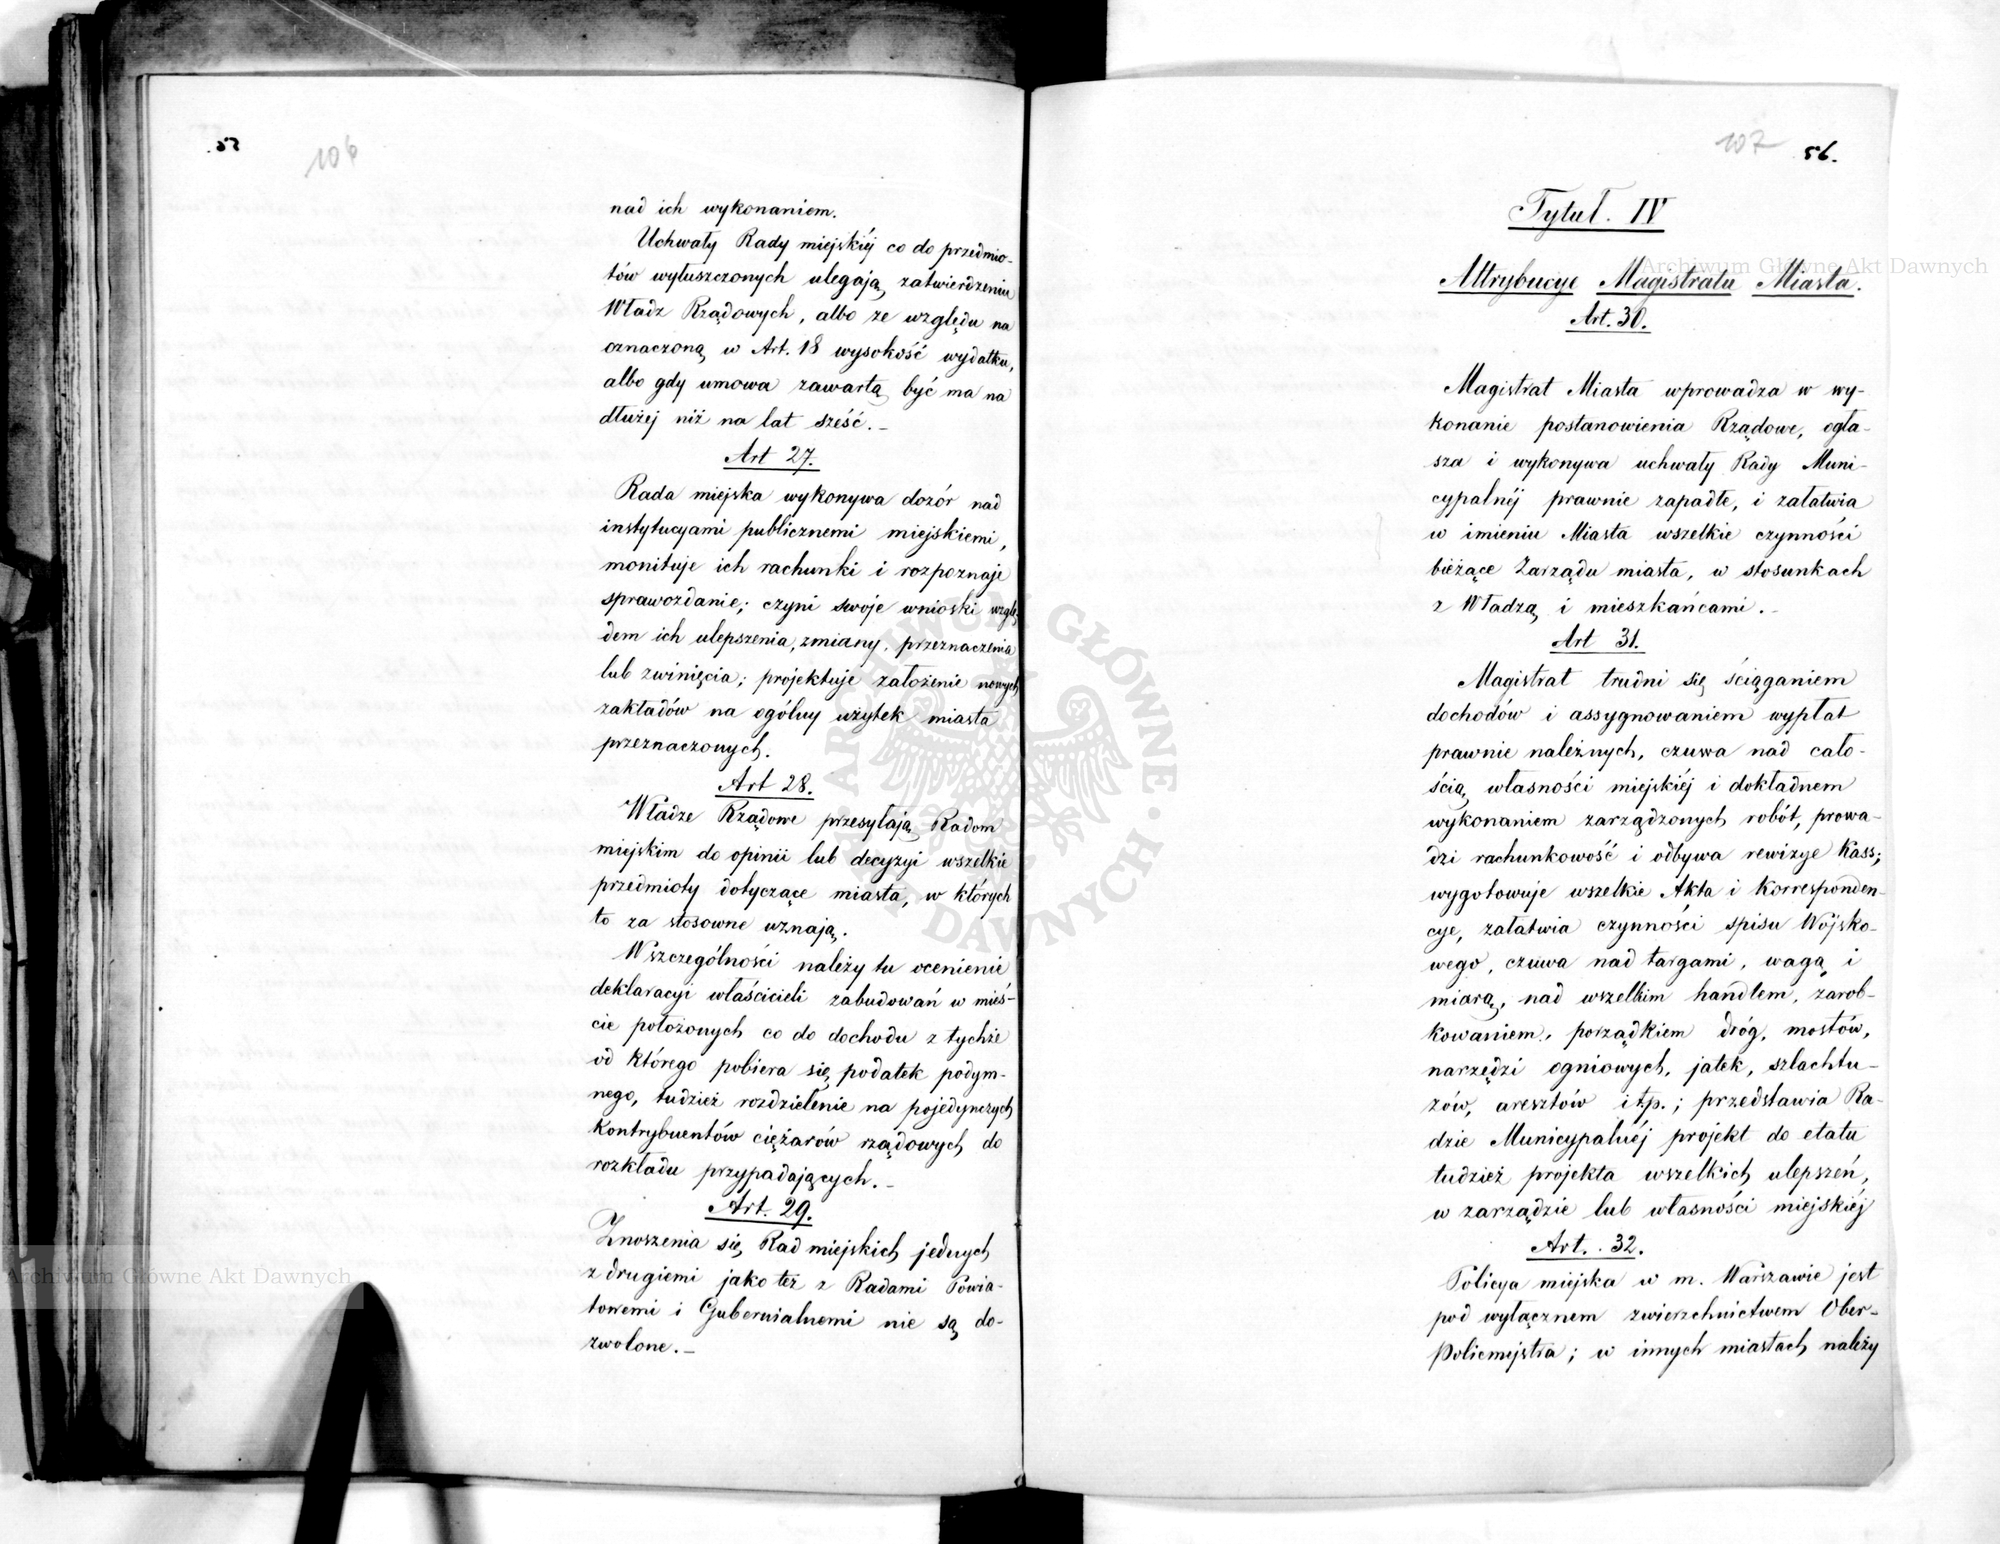 55
106
nad ich wykonaniem.
Uchwały Rady miejskiéj co do przedmio-
tów wyłuszczonych ulegają zatwierdzeniu
Władz Rządowych, albo ze względu na
oznaczoną w Art. 18 wysokość wydatku,
albo gdy umowa zawartą być ma na
dłużej niż na lat sześć. –
Art 27.
Rada miejska wykonywa dozór nad
instytucyami publicznemi miejskiemi,
monituje ich rachunki i rozpoznaje
sprawozdanie; czyni swoje wnioski wzglę-
dem ich ulepszenia, zmiany, przeznaczenia
lub zwinięcia; projektuje założenie nowych
zakładów na ogólny użytek miasta
przeznaczonych.
Art 28.
Władze Rządowe przesyłają Radom
miejskim do opinii lub decyzyi wszelkie
przedmioty dotyczące miasta, w których
to za stosowne uznają.
Wszczególności należy tu ocenienie
deklaracyi właścicieli zabudowań w mieś-
cie położonych co do dochodu z tychże
od którego pobiera się podatek podym-
nego, tudzież rozdzielenie na pojedynczych
kontrybuentów ciężarów rządowych do
rozkładu przypadających. –
Art. 29.
Znoszenia się Rad miejskich jednych
z drugiemi jako też z Radami Powia-
towemi i Gubernialnemi nie są do-
zwolone. –
107
56.
Tytuł. IV
Attrybucye Magistratu Miasta.
Art. 30.
Magistrat Miasta wprowadza w wy-
konanie postanowienia Rządowe, ogła-
sza i wykonywa uchwały Rady Muni-
cypalnéj prawnie zapadłe, i załatwia
w imieniu Miasta wszelkie czynności
bieżące Zarządu miasta, w stosunkach
z Władzą i mieszkańcami. –
Art 31.
Magistrat trudni się ściąganiem
dochodów i assygnowaniem wypłat
prawnie należnych, czuwa nad cało-
ścią własności miejskiéj i dokładnem
wykonaniem zarządzonych robót, prowa-
dzi rachunkowość i odbywa rewizye Kass;
wygotowuje wszelkie Akta i Korresponden-
cye, załatwia czynności spisu Wojsko-
wego, czuwa nad targami, wagą i
miarą, nad wszelkim handlem, zarob-
kowaniem, porządkiem dróg, mostów,
narzędzi ogniowych, jatek, szlachtu-
zów, aresztów itp.; przedstawia Ra-
dzie Municypalnéj projekt do etatu
tudzież projekta wszelkich ulepszeń,
w zarządzie lub własności miejskiéj
Art. 32.
Policya miejska w m. Warszawie jest
pod wyłącznem zwierzchnictwem Ober-
Policmejstra; w innych miastach należy
Archiwum Główne Akt Dawnych
Archiwum Główne Akt Dawnych
ARCHIWUM GŁÓWNE AKT DAWNYCH